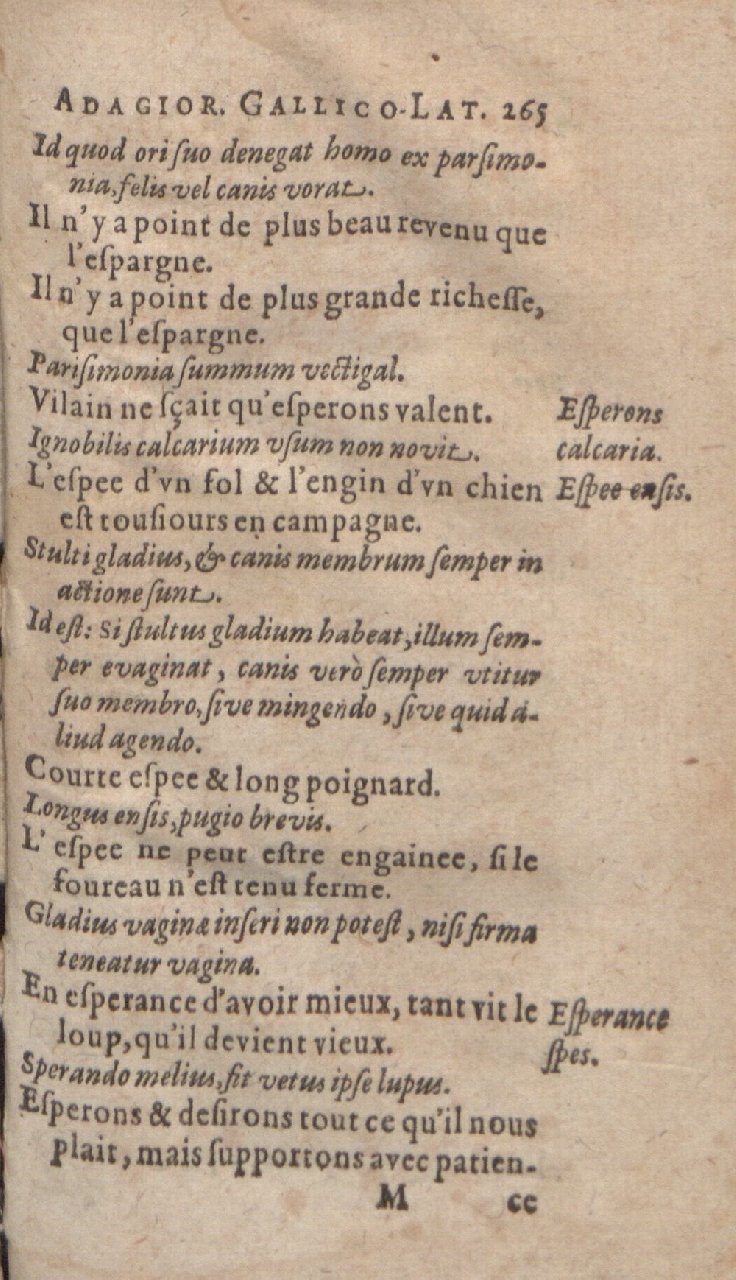 ADAGIOR. GALLICO-LAT. 265
Id quod ori ſuo denegat homo ex parſimo-
nia, felis vel canis vorat.
Il n'y a point de plus beau revenu que
l'eſpargne.
Il n'y a point de plus grande richeſſe,
que l'eſpargne.
Pariſimonia ſummum vectigal.
Vilain ne ſçait qu'eſperons valent.
Eſperons
Ignobilis calcarium vſum non novit.
calcaria.
L'eſpee d'vn fol & l'engin d'vn chien
Eſpee enſis.
eſt touſiours en campagne.
Stulti gladius, & canis membrum ſemper in
actione ſunt.
Id eſt: Si ſtultus gladium habeat, illum ſem-
per evaginat, canis verò ſemper vtitur
ſuo membro, ſive mingendo, ſive quid a-
liud agendo.
Courte eſpee & long poignard.
Longus enſis, pugio brevis.
L'eſpee ne peut eſtre engainee, ſi le
foureau n'eſt tenu ferme.
Gladius vaginæ inſeri non poteſt, niſi firma
teneatur vagina.
En eſperance d'avoir mieux, tant vit le
Eſperance
loup, qu'il devient vieux.
ſpes.
Sperando melius, fit vetus ipſe lupus.
Eſperons & deſirons tout ce qu'il nous
plait, mais ſupportons avec patien-
M ce